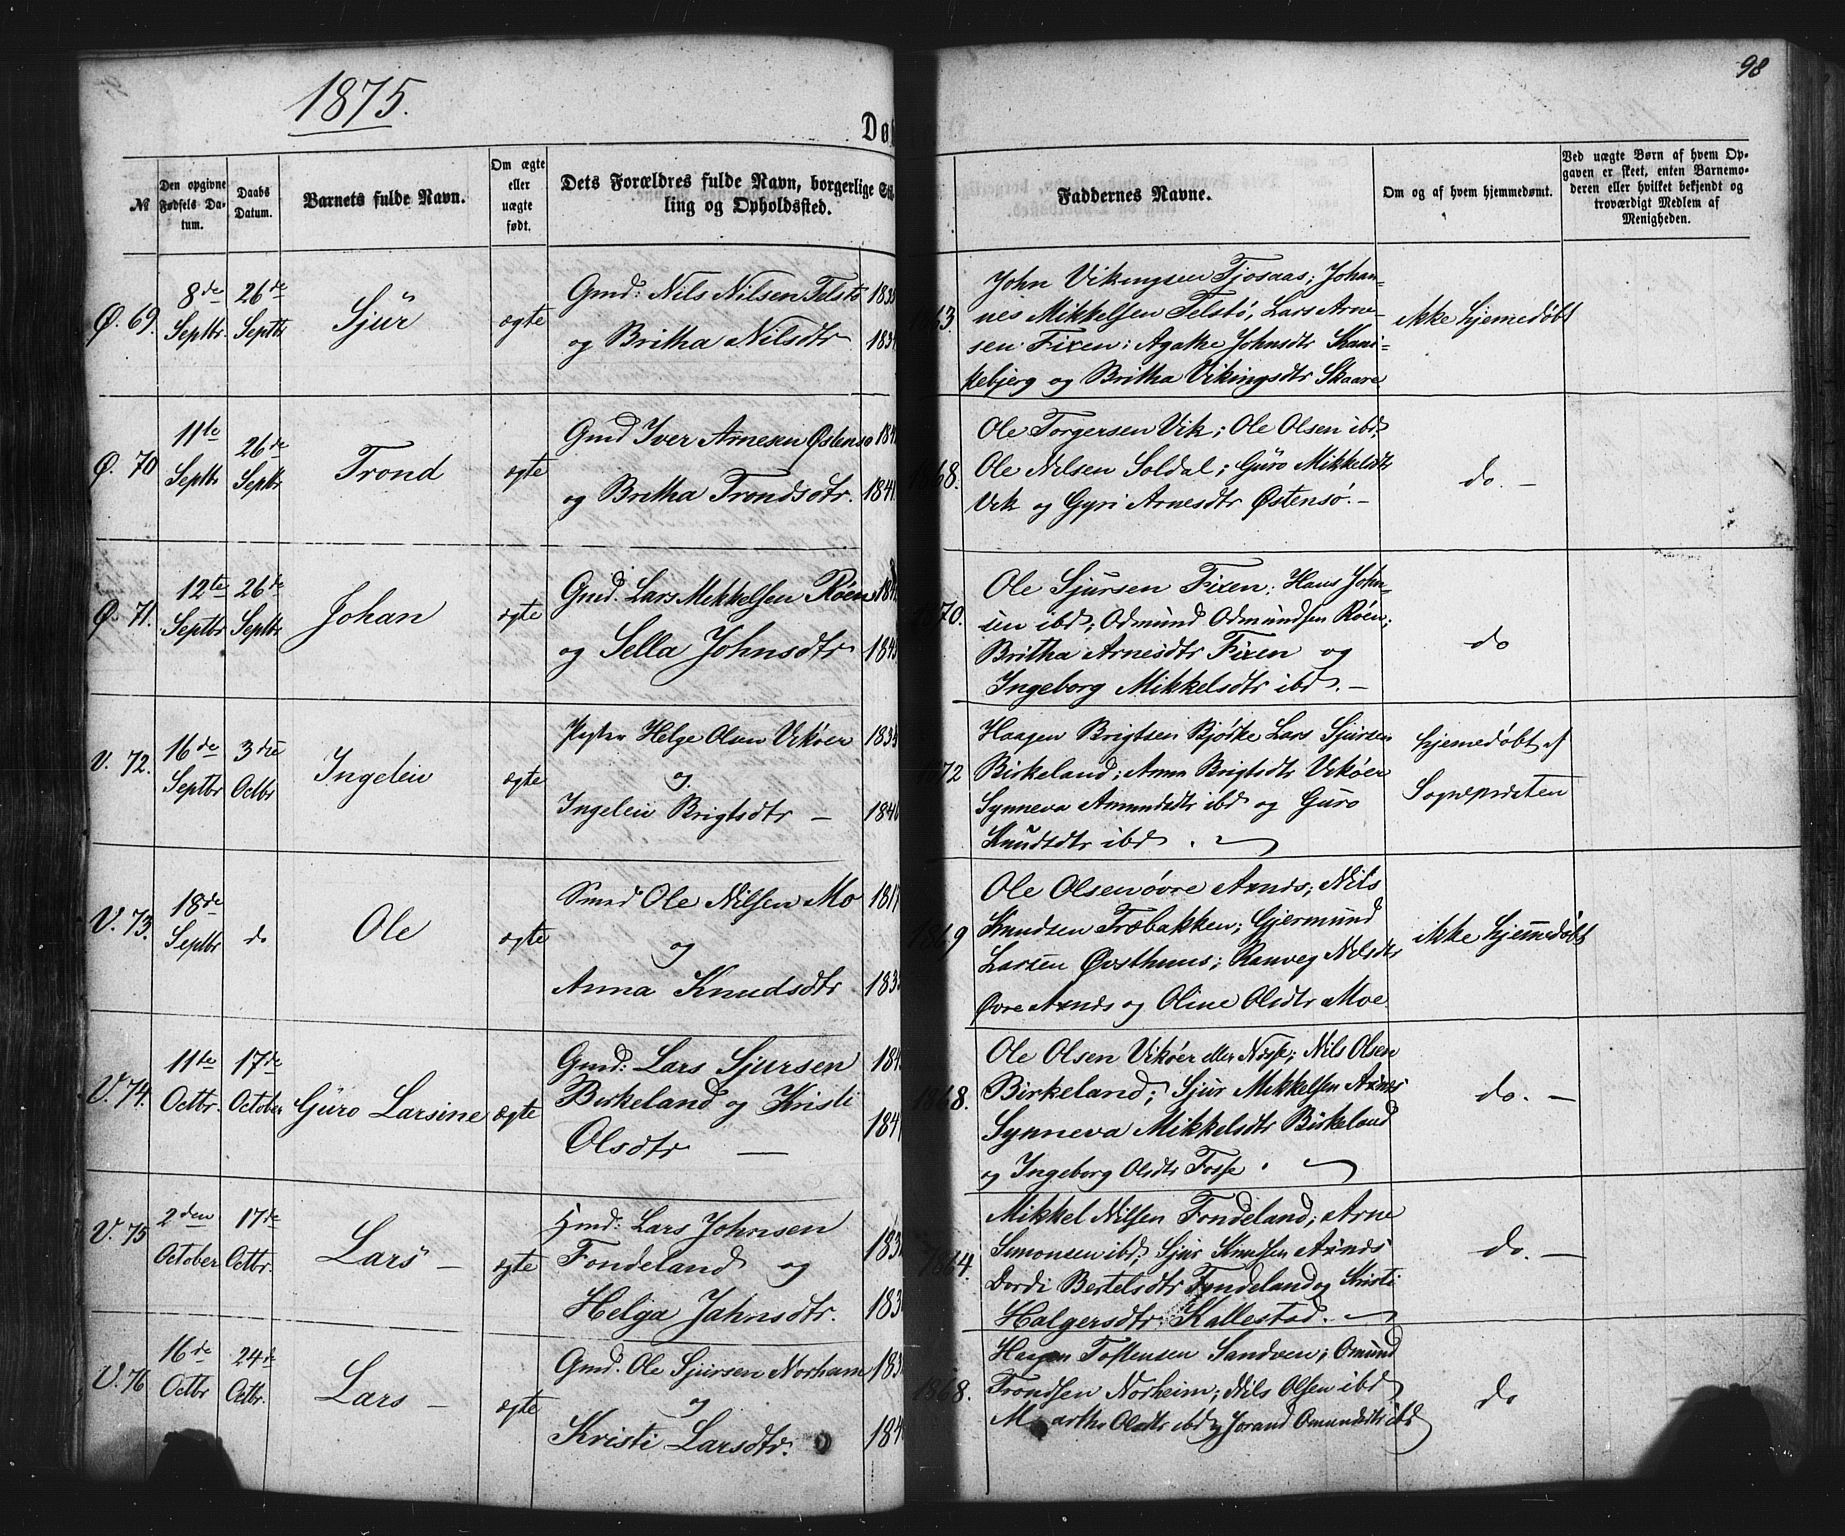 1875.
98
Dø
№
Den opgivne Fødsels Da-
tum.
Daabs
Datum.
Barnets fulde Navn.
Om ægte
eller
uægte
født.
Dets Forældres fulde Navn, borgerlige
ling og Opholdssted.
Faddernes Navne.
Om og af hvem hjemmedøbt.
Ved uægte Børn af hvem Op-
gaven er skeet, enten Barnemo-
deren eller hvilket bekjendt og
troværdigt Medlem af
Menigheden.
Ø. 69. 8de Septbr. 26de Septbr Sjür ægte
Gmd: Nils Nilsen Telstø
og Britha Nilsdtr
John Vikingsen Tjosaas; Johan-
nes Mikkelsen Telstø, Lars Arne-
sen Fixen; Agathe Johnsdtr Kani-
kebjerg og Britha Vikingsdtr Skaare
ikke hjemmedøbt
Ø. 70 11te Septbr 26de Septbr Trond ægte
Gmd Iver Arnesen Østensø
og Britha Trondsdtr.
1868.
Ole Torgersen Vik; Ole Olsen ibd,
Ole Nilsen Soldal; Güro Mikkelsdtr
Vik og Gyri Arnesdtr Østensø. -
do. -
Ø. 71. 12te Septbr 26de Septbr Johan ægte
Gmd. Lars Mikkelsen Röen
og Sella Johnsdtr
1870.
Ole Sjursen Fixen; Hans John-
sen ibd; Odmünd Odmündsen Röen;
Britha Arnesdtr Fixen og
Ingeborg Mikkelsdtr ibd. -
do
V. 72. 16de Septbr 3die Octbr Ingeleiv ægte
Helge Olsen Vikøer
og
Ingeleiv Brigtsdtr -
Haagen Brigtsen Bjørke Lars Sjursen
Birkeland; Anna Brigtsdtr Vikøer
Synneva Amundsdtr ibd og Guro
Knudsdtr ibd.
hjemedøbt af
Sognepresten
V. 73. 18de Septbr do Ole ægte
Smed Ole Nilsen Mo
og
Anna Knudsdtr.
1869
Ole Olsen øvre Axnes; Nils
Knudsen Træbakken; Gjermund
Larsen Øvsthuus; Ranveg Nilsdtr
Øvre Axnes og Oline Olsdtr Moe
ikke hjemmedøbt
V. 74. 11te Octbr. 17de October Güro Larsine ægte
Gmd: Lars Sjursen
Birkeland og Kristi
Olsdtr -
1868.
Ole Olsen Vikøer eller Fosse; Nils Olsen
Birkeland; Sjur Mikkelsen Axnes
Synneva Mikkelsdtr Birkeland
og Ingeborg Olsdtr Fosse.
do. -
V. 75 2den October 17de Octbr. Lars - ægte
Lars Johnsen
Fondeland og
Helga Jahnsdtr.
1864.
Mikkel Nilsen Fondeland; Arne
Simonsen ibd; Sjur Knudsen Axnes
Dordi Bertelsdtr Fondeland og Kristi
Holgersdtr Kallestad.
do. -
V. 76 16de Octbr 24de Octbr. Lars - ægte
Gmd. Ole Sjursen Norheim
og
Kristi Larsdtr.
1868.
Haagen Tostensen Sandven; Omund
Trondsen Norheim; Nils Olsen ibd
Martha Olsdtr ibd og Jorand Omundsdtr ibd
do